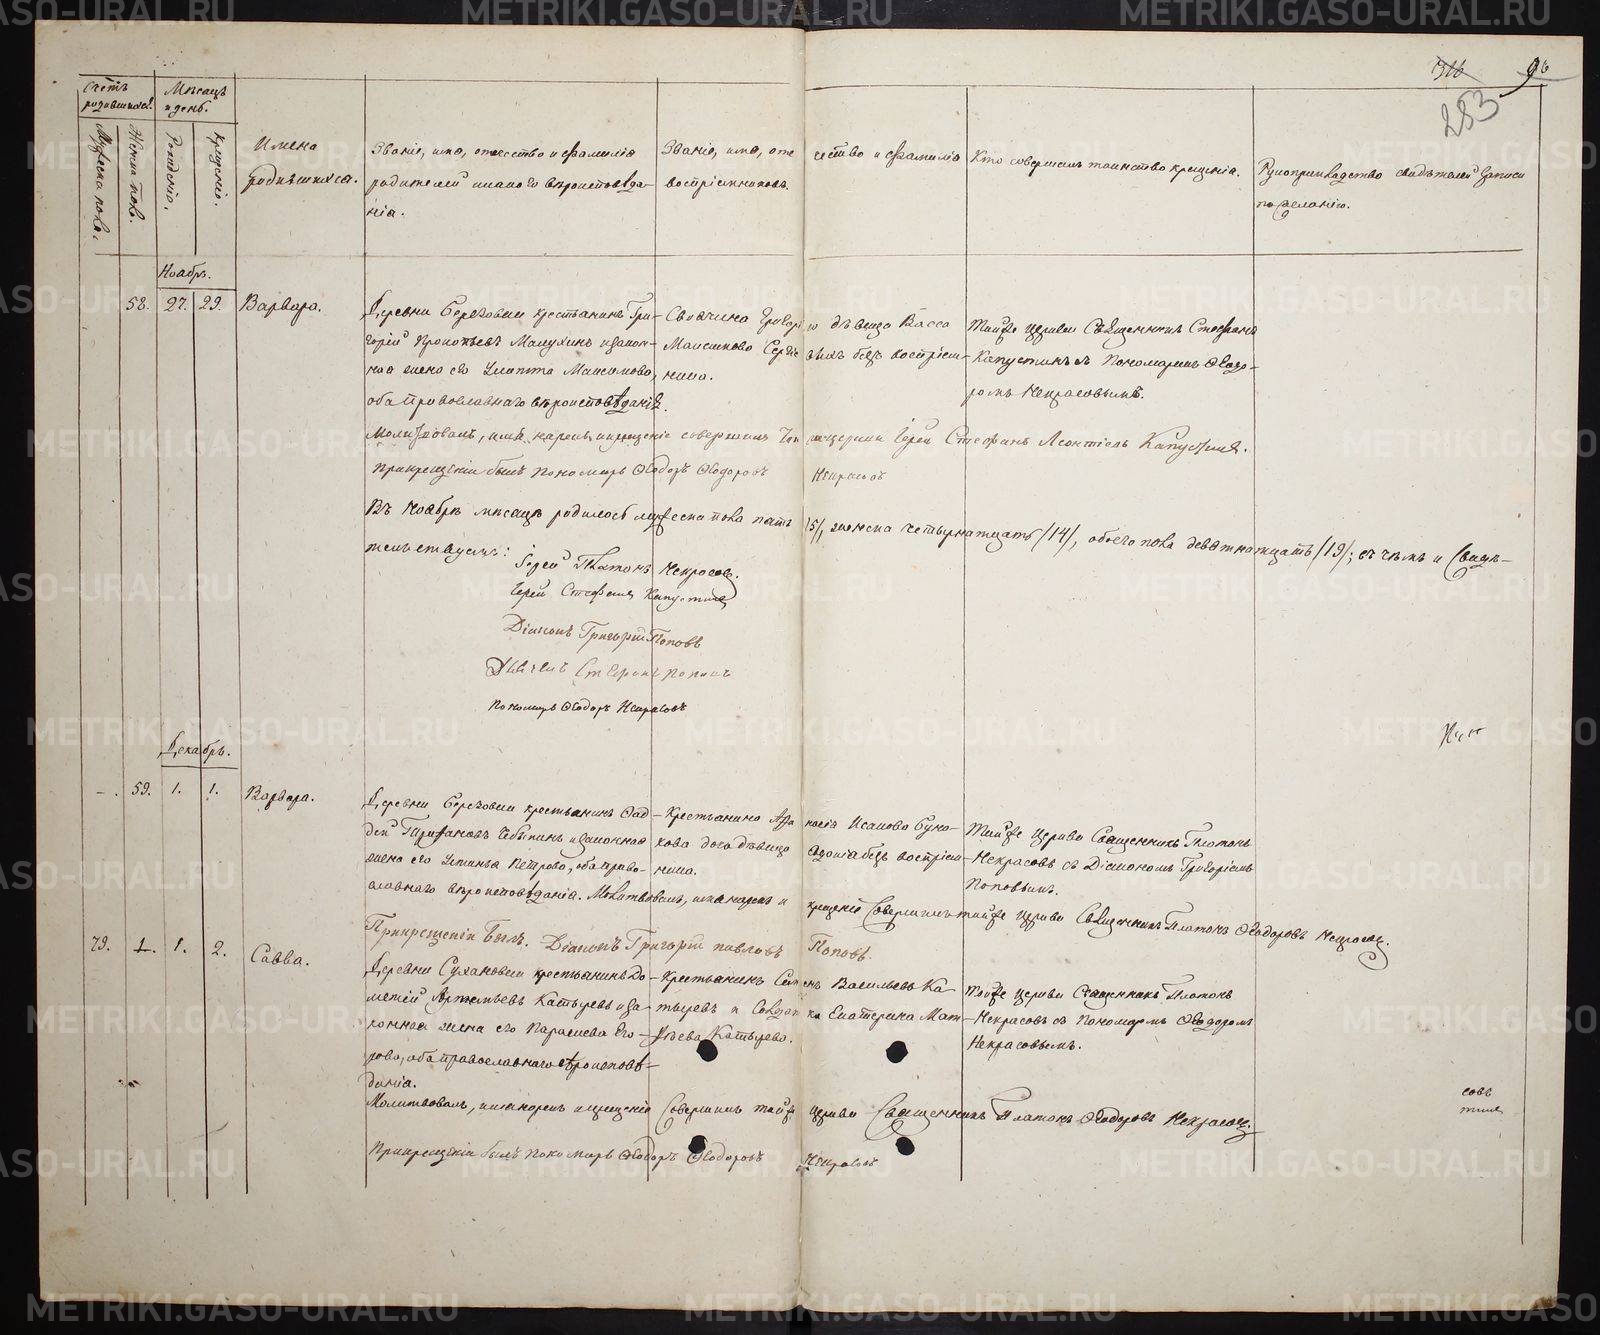 316 96
283
Счетъ родившихся.
Мѣсяцъ и день.
Мужеска пола.
Женска пола.
Рожденія.
Крещенія.
Имена родившихся.
Званіе, имя, отчество и фамилія
родителей и какого вѣроисповѣда-
нія.
Званіе, имя, отчество и фамилія
воспріемниковъ.
Кто совершалъ таинство крещенія.
Рукоприкладство свидѣтелей записи
по желанію.
Ноабрь.
58. 27. 29. Варвара.
Деревни Березовки крестьянинъ Гри-
горій Прокопьевъ и закон-
ная жена его Максимова,
оба православнаго вѣроисповѣданія.
дѣвица Васса
безъ воспріем-
ника.
Тойже церкви Священникъ Стефанъ
Капустинъ съ Пономаремъ Ѳеодо-
ромъ Некрасовымъ.
Молитвовалъ, имя нарекъ и крещеніе совершилъ Іерей Стефанъ Леонтіевъ Капустинъ.
При крещеніи былъ Пономарь Ѳеодоръ Ѳеодоровъ Некрасовъ
Въ Ноабрѣ мѣсяцѣ родилось мужеска пола пять /5/, женска четырнатцать /14/, обоего пола девятнатцать /19/; въ чемъ и свидѣ-
тельствуемъ: Іерей Платонъ Некрасовъ.
Іерей Стефанъ Капустинъ
Діаконъ Григорій Поповъ
Дьячекъ Поповъ
Пономарь Ѳеодоръ Некрасовъ
Декабрь.
- . 59. 1. 1. Варвара.
Деревни Березовки крестьянинъ Ѳад-
дей и законная
жена его Устинья Петрова, оба право-
славнаго вѣроисповѣданія. Молитвовалъ, имя нарекъ и
Крестьянина Исакова
дочь дѣвица
безъ воспріем-
ника.
Тойже церкви Священникъ Платонъ
Некрасовъ съ Діакономъ Григоріемъ
Поповымъ.
крещеніе совершилъ тойже церкви Священникъ Платонъ Ѳеодоровъ Некрасовъ.
При крещеніи былъ. Діаконъ Григорій Павловъ Поповъ.
79. 1. 1. 2. Савва.
Деревни Сухановки крестьянинъ До-
метій Артемьевъ Катыревъ и за-
конная жена его Параскева Его-
рова, оба православнаго вѣроисповѣ-
данія.
Крестьянинъ Васильевъ Ка-
тыревъ и Екатерина Мат-
вѣева Катырева.
Тойже церкви Священникъ Платонъ
Некрасовъ съ Пономаремъ Ѳеодоромъ
Некрасовымъ.
Молитвовалъ, имя нарекъ и крещеніе совершилъ тойже церкви Священникъ Платонъ Ѳеодоровъ Некрасовъ.
При крещеніи былъ Пономарь Ѳеодоръ Ѳеодоровъ Некрасовъ
METRIKI.GASO-URAL.RU